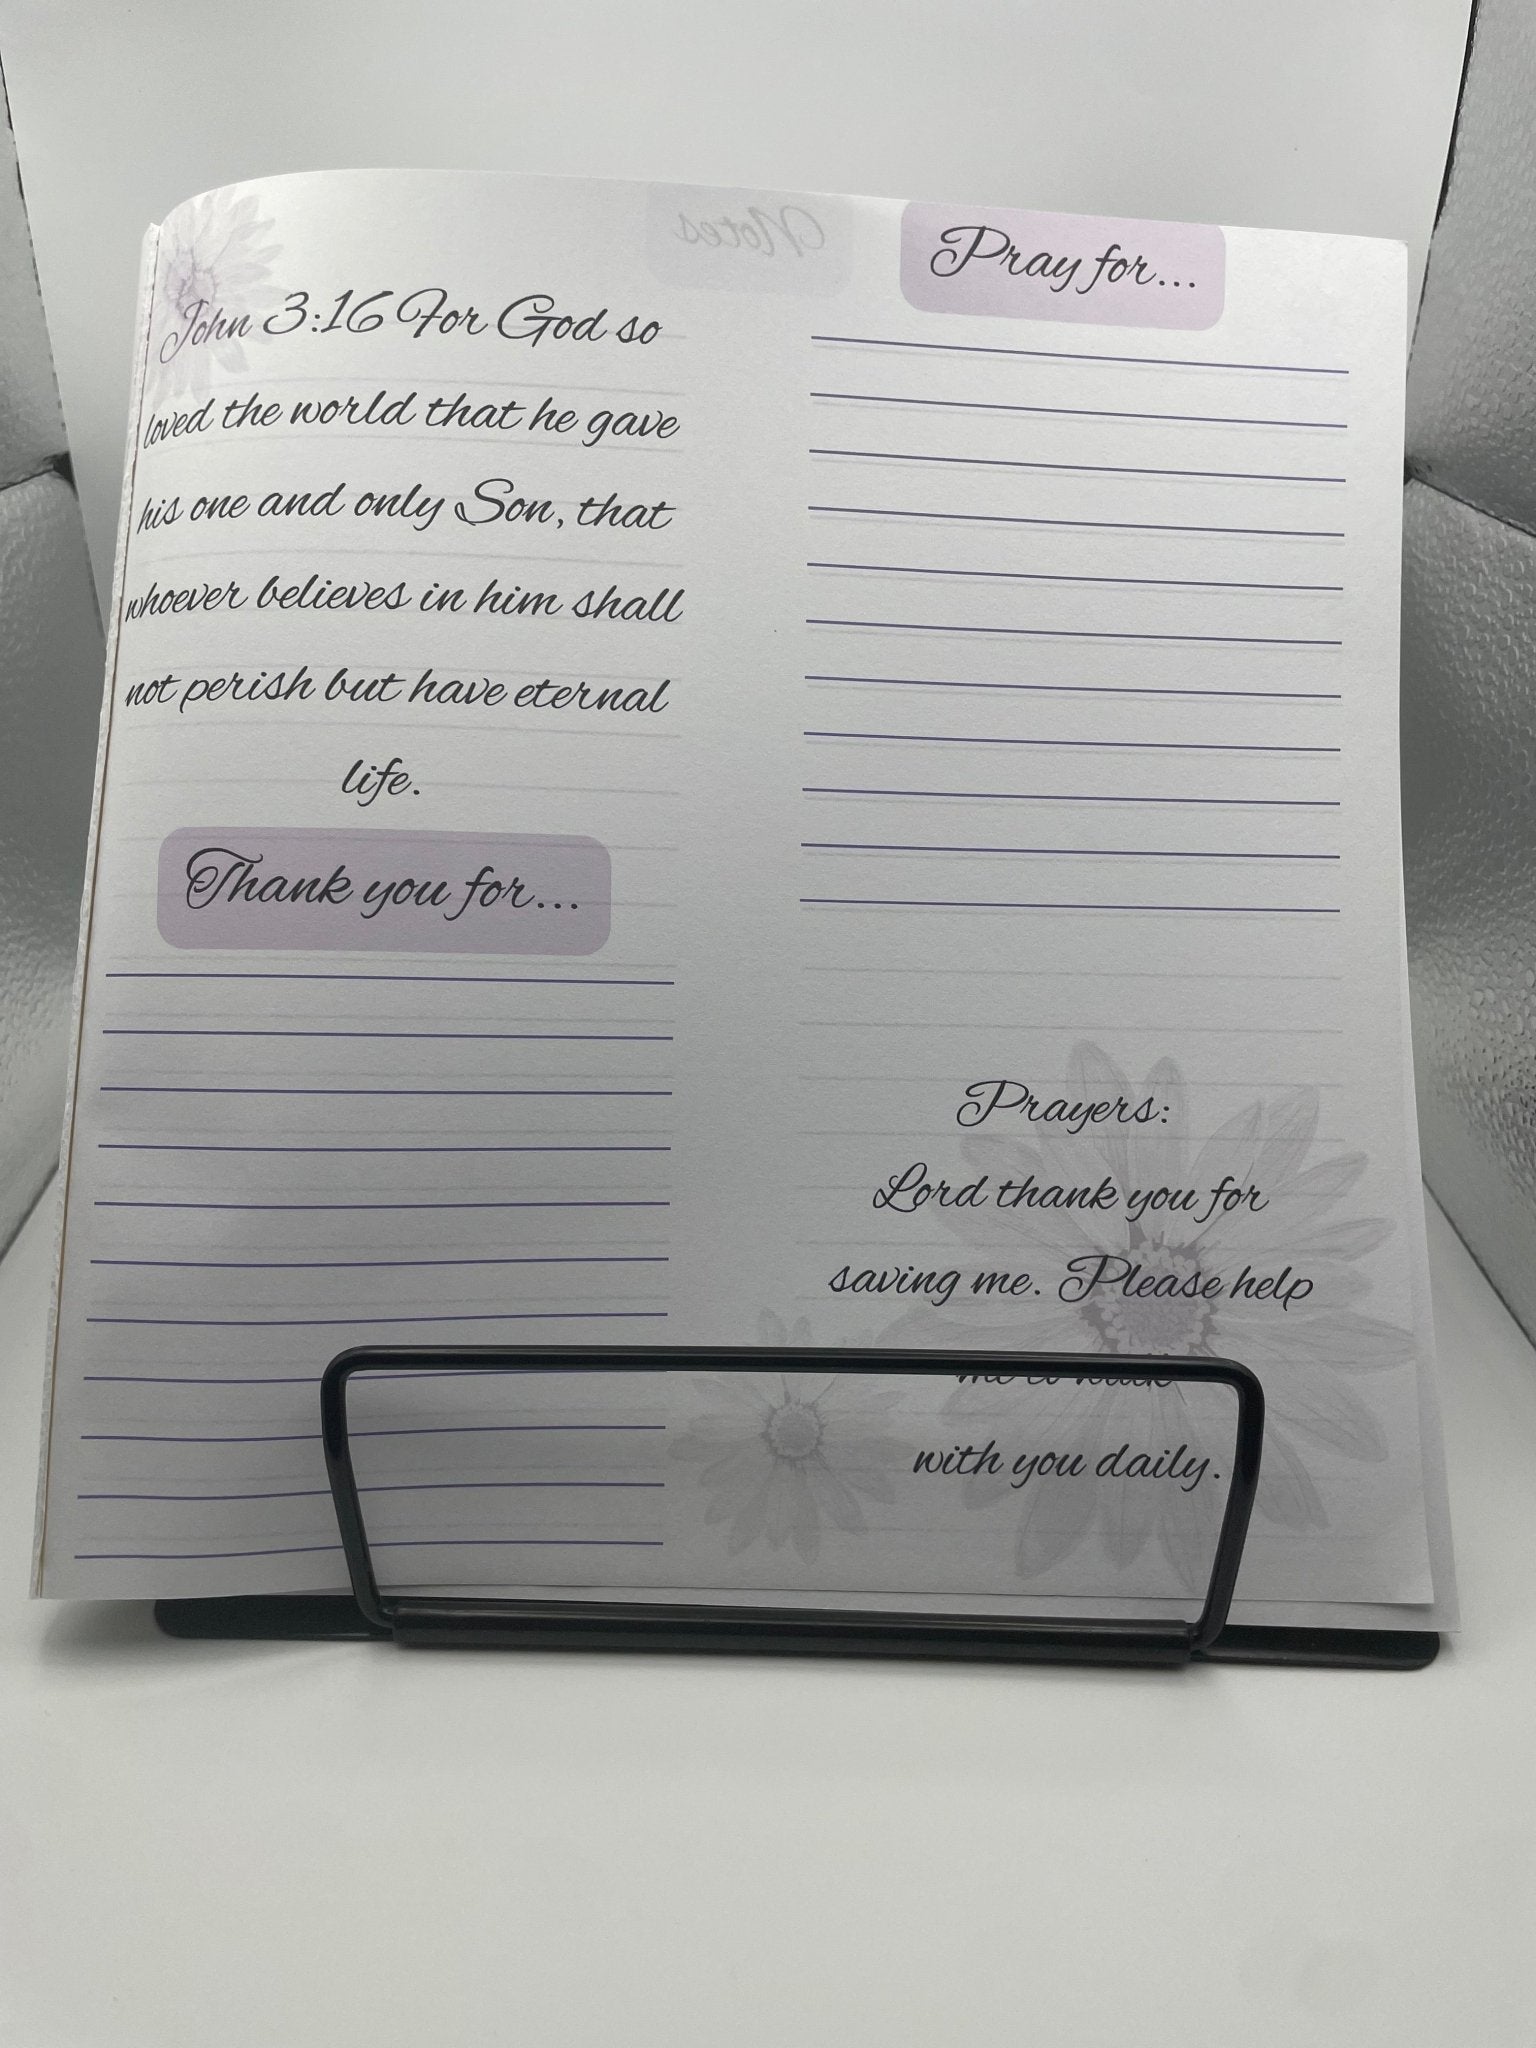 John 3:16 For God so
loved the world that he gave
his one and only Son, that
whoever believes in him shall
not perish but have eternal
life.
Thank you for...
Notes
Pray for...
Prayers:
Lord thank you for
saving me. Please help
me
with you daily.